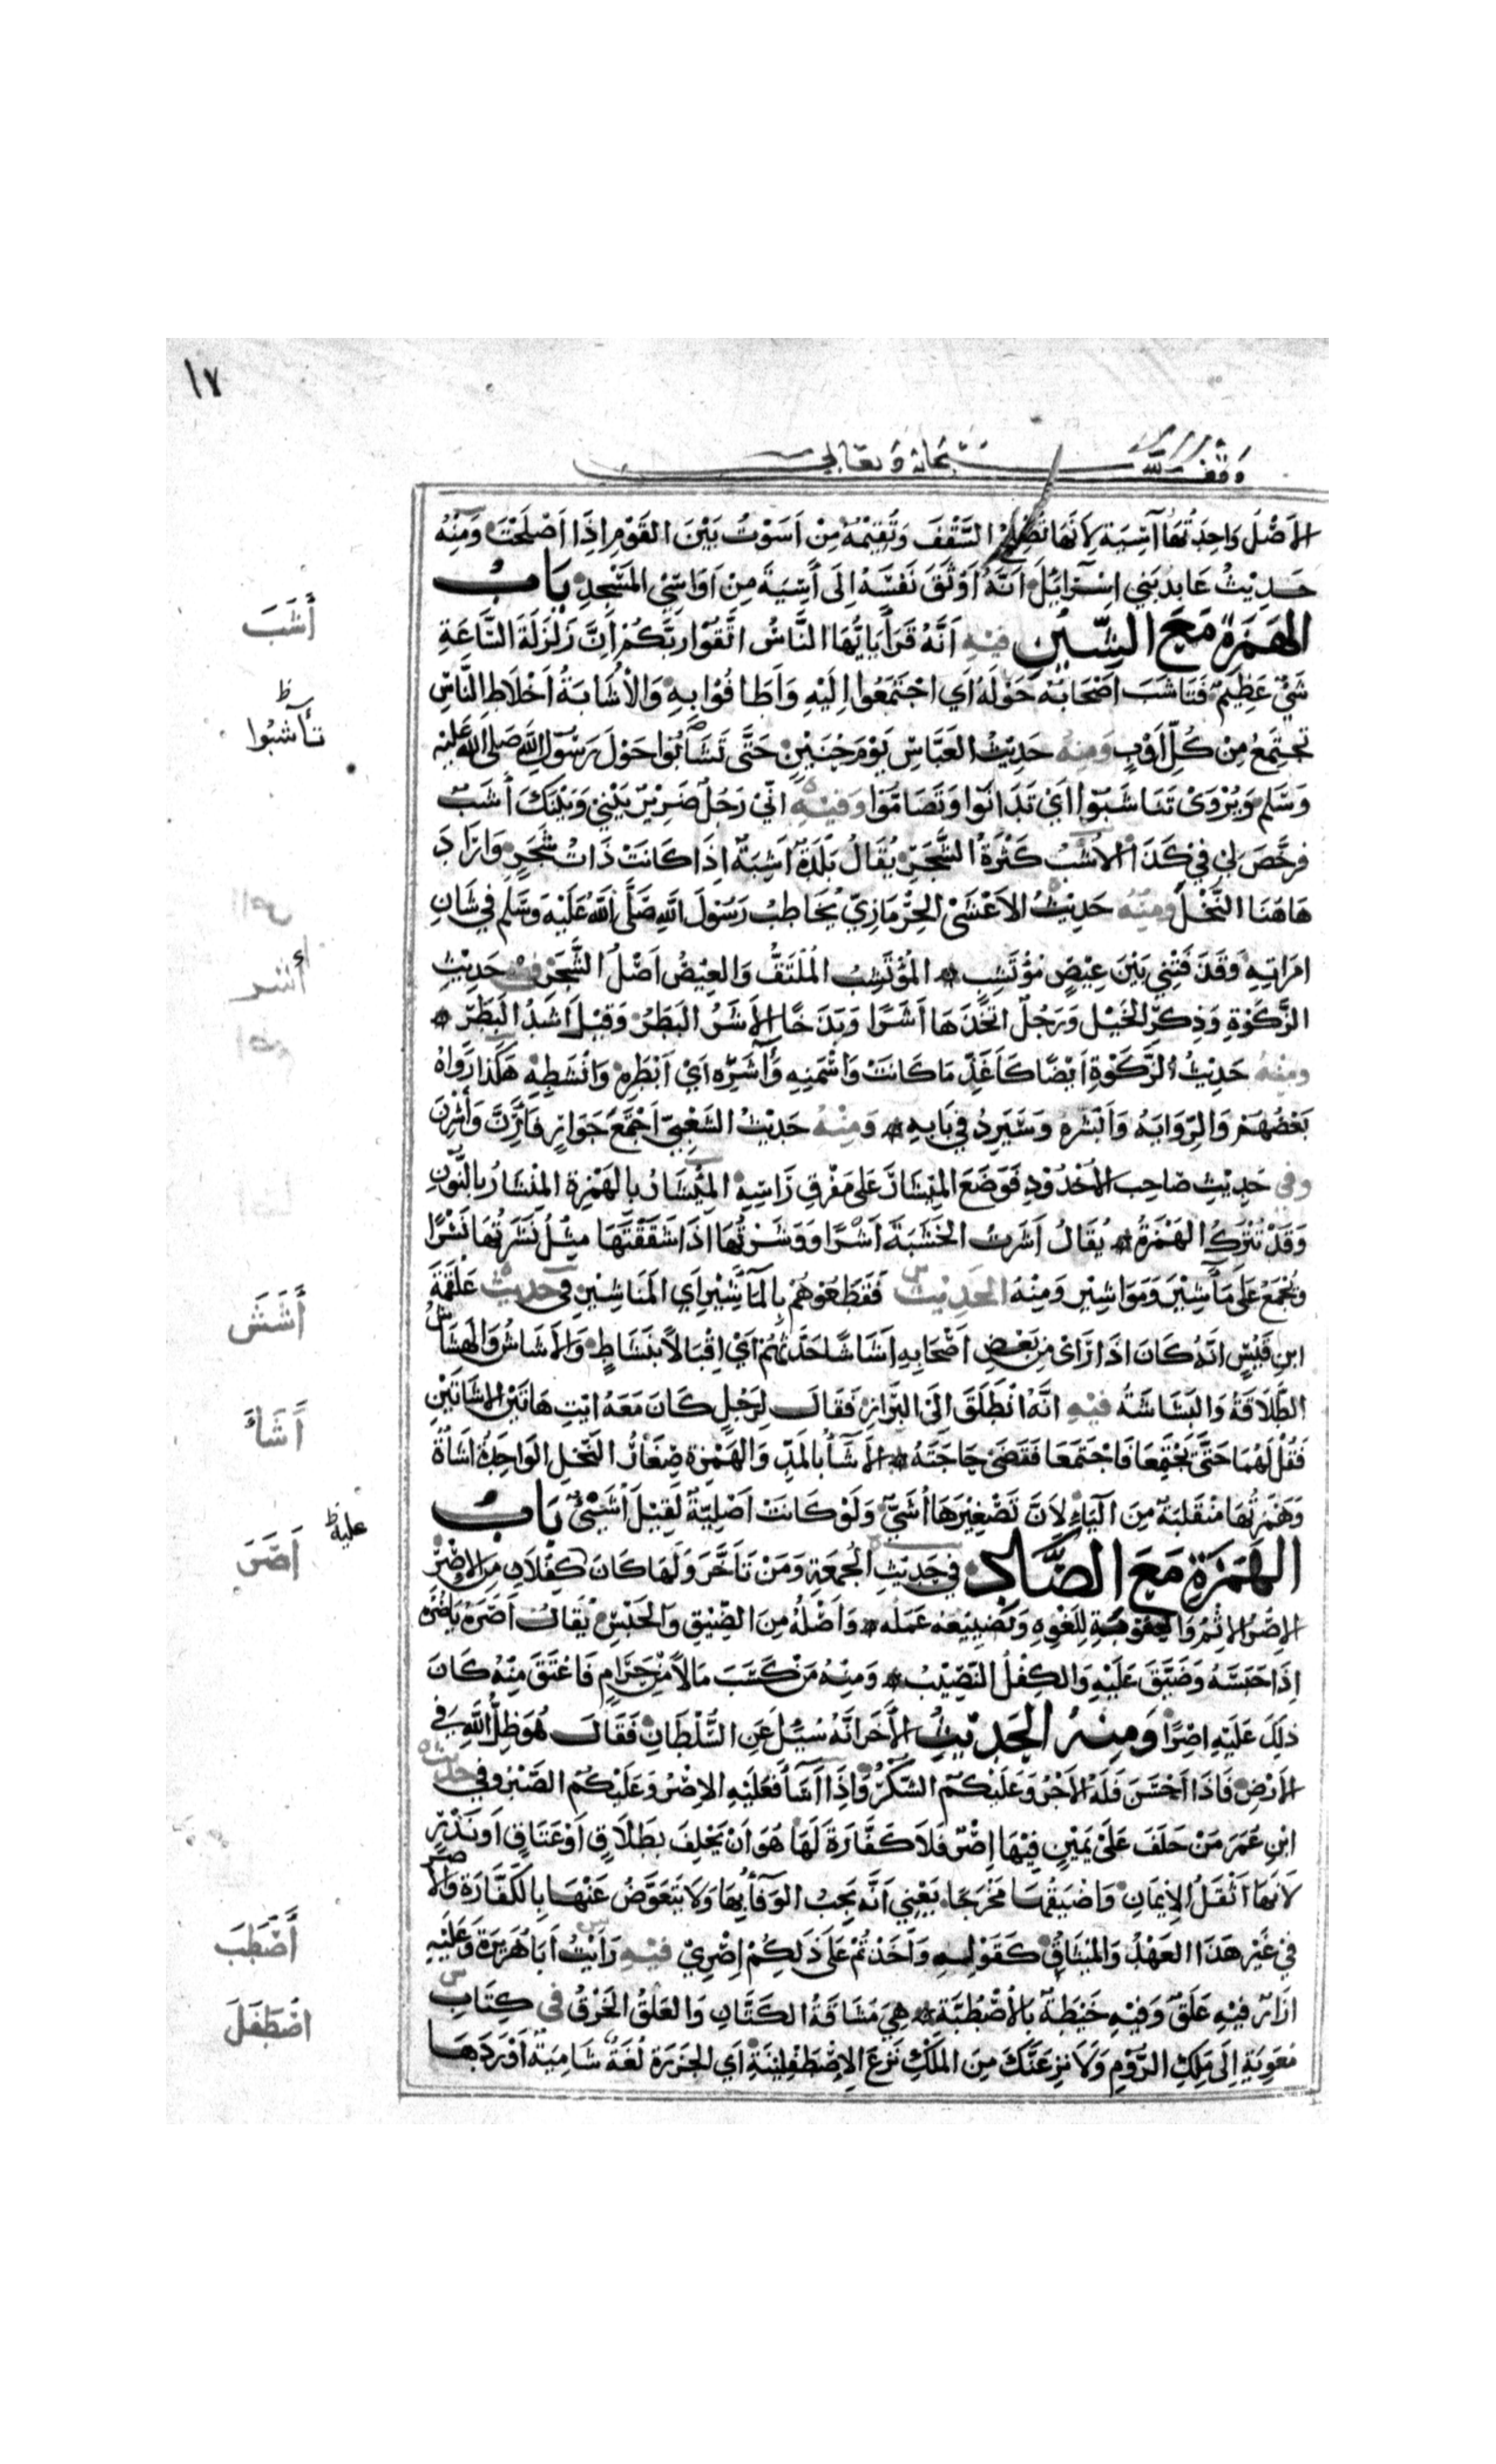 ١٧
وقف لله سبحانه وتعالى
الأصل واحدتها آسية لأنها تصلح السقف وتقيمه من أسوت بين القوم إذا أصلحت ومنه
حديث عابد بني إسرائيل أنه أوثق نفسه إلى آسية من أواسي المسجد باب
الهمزة مع الشين فيه أنه قرأ يا يها الناس اتقوا ربكم إن زلزلة الساعة
شيء عظيم فتأشب أصحابه حوله أي اجتمعوا إليه وأطافوا به والأشابة أخلاط الناس
تجتمع من كل أوب ومنه حديث العباس يوم حنين حتى تأشبوا حول رسول الله صلى الله عليه
وسلم ويروى تناشبوا أي تدانوا وتضاموا وفيه إني رجل ضرير بيني وبينك أشب
فرخص لي في كذا الأشب كثرة الشجر يقال بلدة أشبة إذا كانت ذات شجر وأراد
هاهنا النخل ومنه حديث الأعشى الحرمازي يخاطب رسول الله صلى الله عليه وسلم في شان
امراته وقذفتني بين عيص مؤتشب المؤتشب الملتف والعيص أصل الشجر فيه حديث
الزكوة وذكر الخيل ورجل اتخذها أشرا وبذخا الأشر البطر وقيل أشد البطر
ومنه حديث الزكوة أيضا كأغذ ما كانت وأسمنه وآشره أي أبطره وأنشطه هكذا رواه
بعضهم والرواية وأبشره وسيرد في بابه ومنه حديث الشعبي اجتمع جوار فأرن وأشرن
وفي حديث صاحب الأخدود فوضع المئشار على مفرق راسه المئشار بالهمزة المنشار بالنون
وقد تترك الهمزة يقال أشرت الخشبة أشرا ووشرتها إذا شققتها مثل نشرتها نشرا
ويجمع على مآشير ومواشير ومنه الحديث فقطعوهم بالمآشير أي المناشير في حديث علقمة
ابن قيس أنه كان إذا رأى من بعض أصحابه أشاشا حدثهم أي إقبالا بنشاط والأشاش والهشاش
الطلاقة والبشاشة فيه أنه انطلق إلى البراز فقال لرجل كان معه ايت هاتين الأشاتين
فقل لهما حتى تجتمعا فاجتمعا فقضى حاجته الأشاء بالمد والهمزة صغار النخل الواحدة أشاة
وهمزتها منقلبة من الياء لأن تصغيرها أشي ولو كانت أصلية لقيل أشيئ باب
الهمزة مع الصاد في حديث الجمعة ومن تأخر ولها كان كفلان من الإصر
الإصر الإثم والعقوبة للغوه وتضييعه عمله وأصله من الضيق والحبس يقال أصره ياصره
إذا حبسه وضيق عليه والكفل النصيب ومنه من كسب مالا من حرام فأعتق منه كان
ذلك عليه إصرا ومنه الحديث الأخر أنه سئل عن السلطان فقال هو ظل الله في
الأرض فإذا أحسن فله الأجر وعليكم الشكر وإذا أساء فعليه الإصر وعليكم الصبر وفي حديث
ابن عمر من حلف على يمين فيها إصر فلا كفارة لها هو أن يحلف بطلاق أو عتاق أو نذر
لأنها أثقل الإيمان وأضيقها مخرجا يعني أنه يجب الوفاء بها ولا يتعوض عنها بالكفارة والإصر
في غير هذا العهد والميثاق كقوله وأخذتم على ذلكم إصري فيه رأيت أبا هريرة وعليه
إزار فيه علق وفيه خيطه بالأصطبة هي مشاقة الكتان والعلق الخرق في كتاب
معوية إلى ملك الروم ولانزعنك من الملك نزع الإصطفلينة أي الجزرة لغة شامية أوردها
أشب
تأشبوا ظ
أشر
أشش
أشاء
عليه ظ
أصر
أصطب
اصطفل